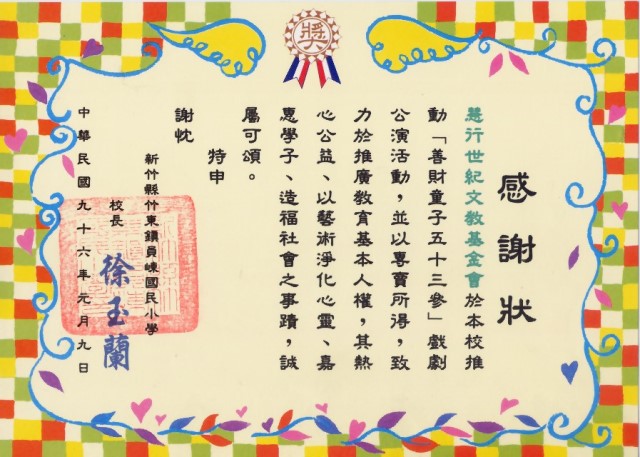 獎
感謝狀
慧行世紀文教基金會於本校推
動「善財童子五十三參」戲劇
公演活動,並以專賣所得,致
力於推廣教育基本人權,其熱
心公益、以藝術淨化心靈、嘉
惠學子、造福社會之事蹟,誠
屬可頌。
特申
謝忱
新竹縣竹東鎮員崠國民小學
校長
徐玉蘭
中華民國九十六年元月九日